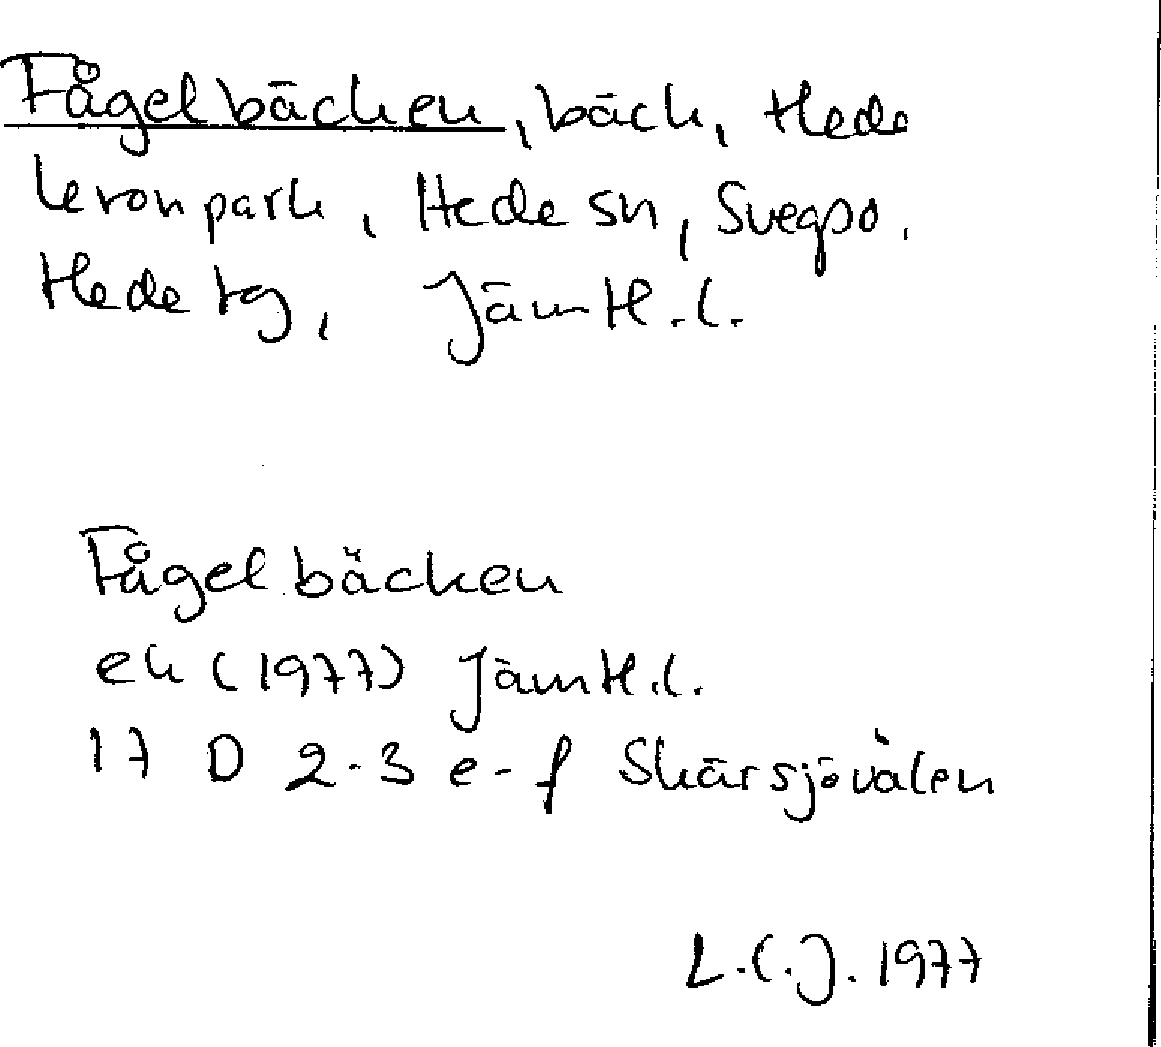 Fågelbäcken, bäck, Hede
kronpark, Hede sn, Svegs po,
Hede tg, Jämtl.l.
Fågelbäcken
ek (1977) Jämtl.l.
17 D 2-3 e-f Skärsjövålen
L.C.J. 1977